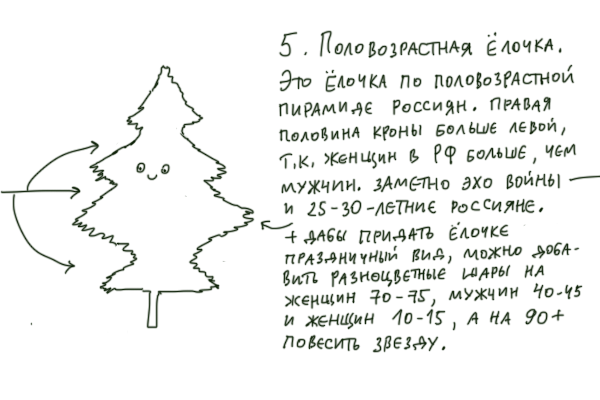 5. Половозрастная ёлочка.
Это ёлочка по половозрастной
пирамиде россиян. Правая
половина кроны больше левой,
т.к. женщин в РФ больше, чем
мужчин. Заметно эхо войны
и 25-30-летние россияне.
+ дабы придать ёлочке
праздничный вид, можно доба-
вить разноцветные шары на
женщин 70-75, мужчин 40-45
и женщин 10-15, а на 90+
повесить звезду.